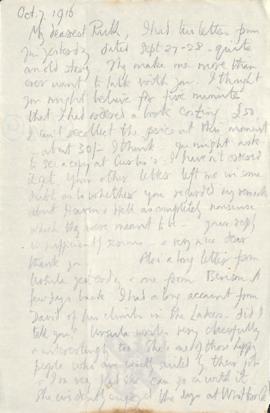 Oct. 7. 1916
My dearest Ruth, I had two letters from
you yesterday dated Sept 27-28 - quite
an old story. They make me more than
ever want to talk with you. I thought
you might believe for five minutes
that I had ordered a book costing £50
I can't recollect the price at this moment
about 30/- I think. You might ask
to see a copy at I haven't ordered
it yet. Your other letter left me in some
doubt as to whether you regarded my remarks
about Heaven & Hell as completely nonsense
which they were meant to be - your reply
is sufficiently - a very nice dear
thank you. Also a long letter from
Ursula yesterday & one from
few days back I had a long account from
David of his climbs in the Lakes. Did I
tell you? Ursula writes very cheerfully
& interestingly too. She's one of those happy
people who are really suited by their job
& I'm very glad she can go on with it.
She evidently enjoyed the days at